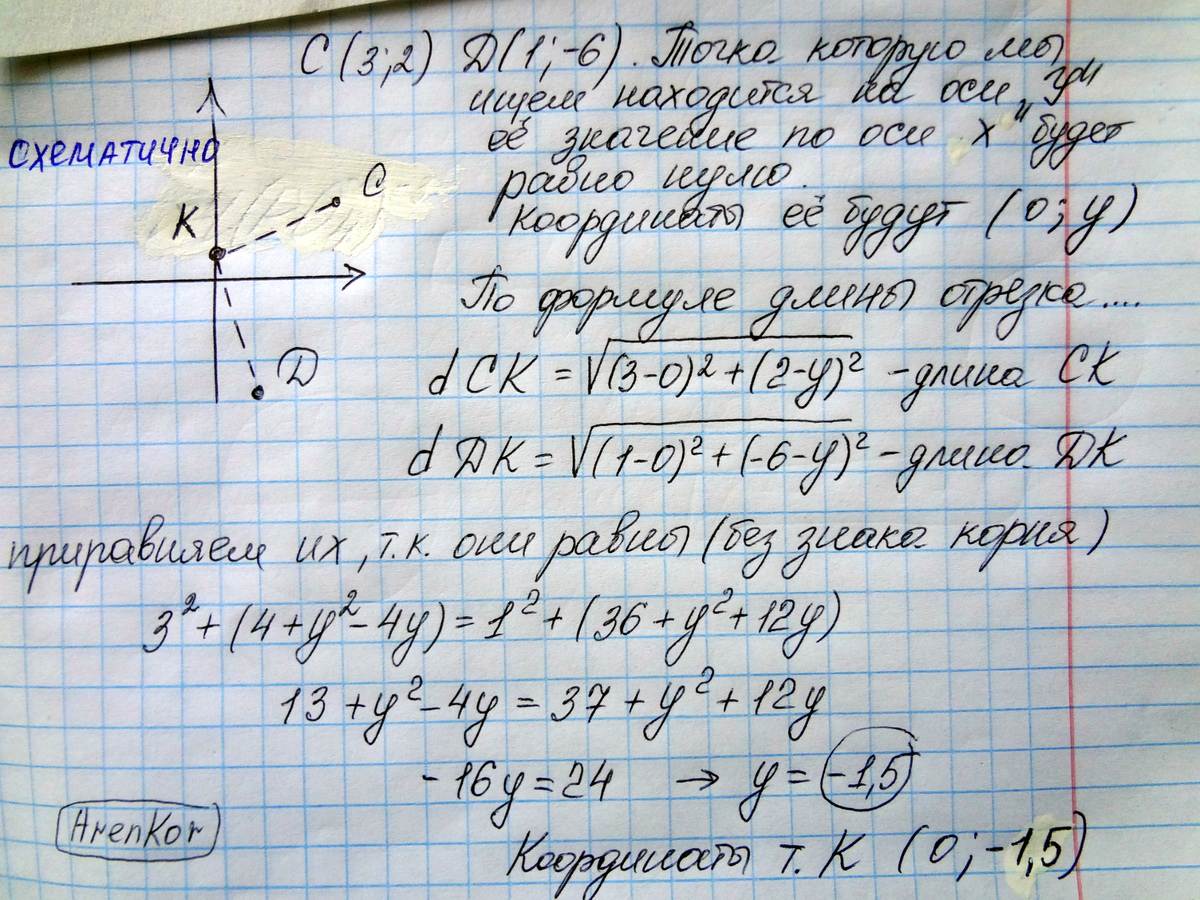 С (3;2) D(1;-6). Точка которую мы
ищем находится на оси „У"
её значение по оси „х" будет
равно нулю.
координаты её будут (0; у)
схематично
C
K
D
По формуле длины отрезка....
d CK = √(3-0)² + (2-y)² - длина CK
d DK = √(1-0)² + (-6-y)² - длина DK
приравняем их, т.к. они равны (без знака корня)
3² + (4+y²-4y) = 1² + (36+y²+12y)
13 + y² - 4y = 37 + y² + 12y
-16y = 24 → y = -1,5
ArenKor
Координаты т. К (0; -1,5)